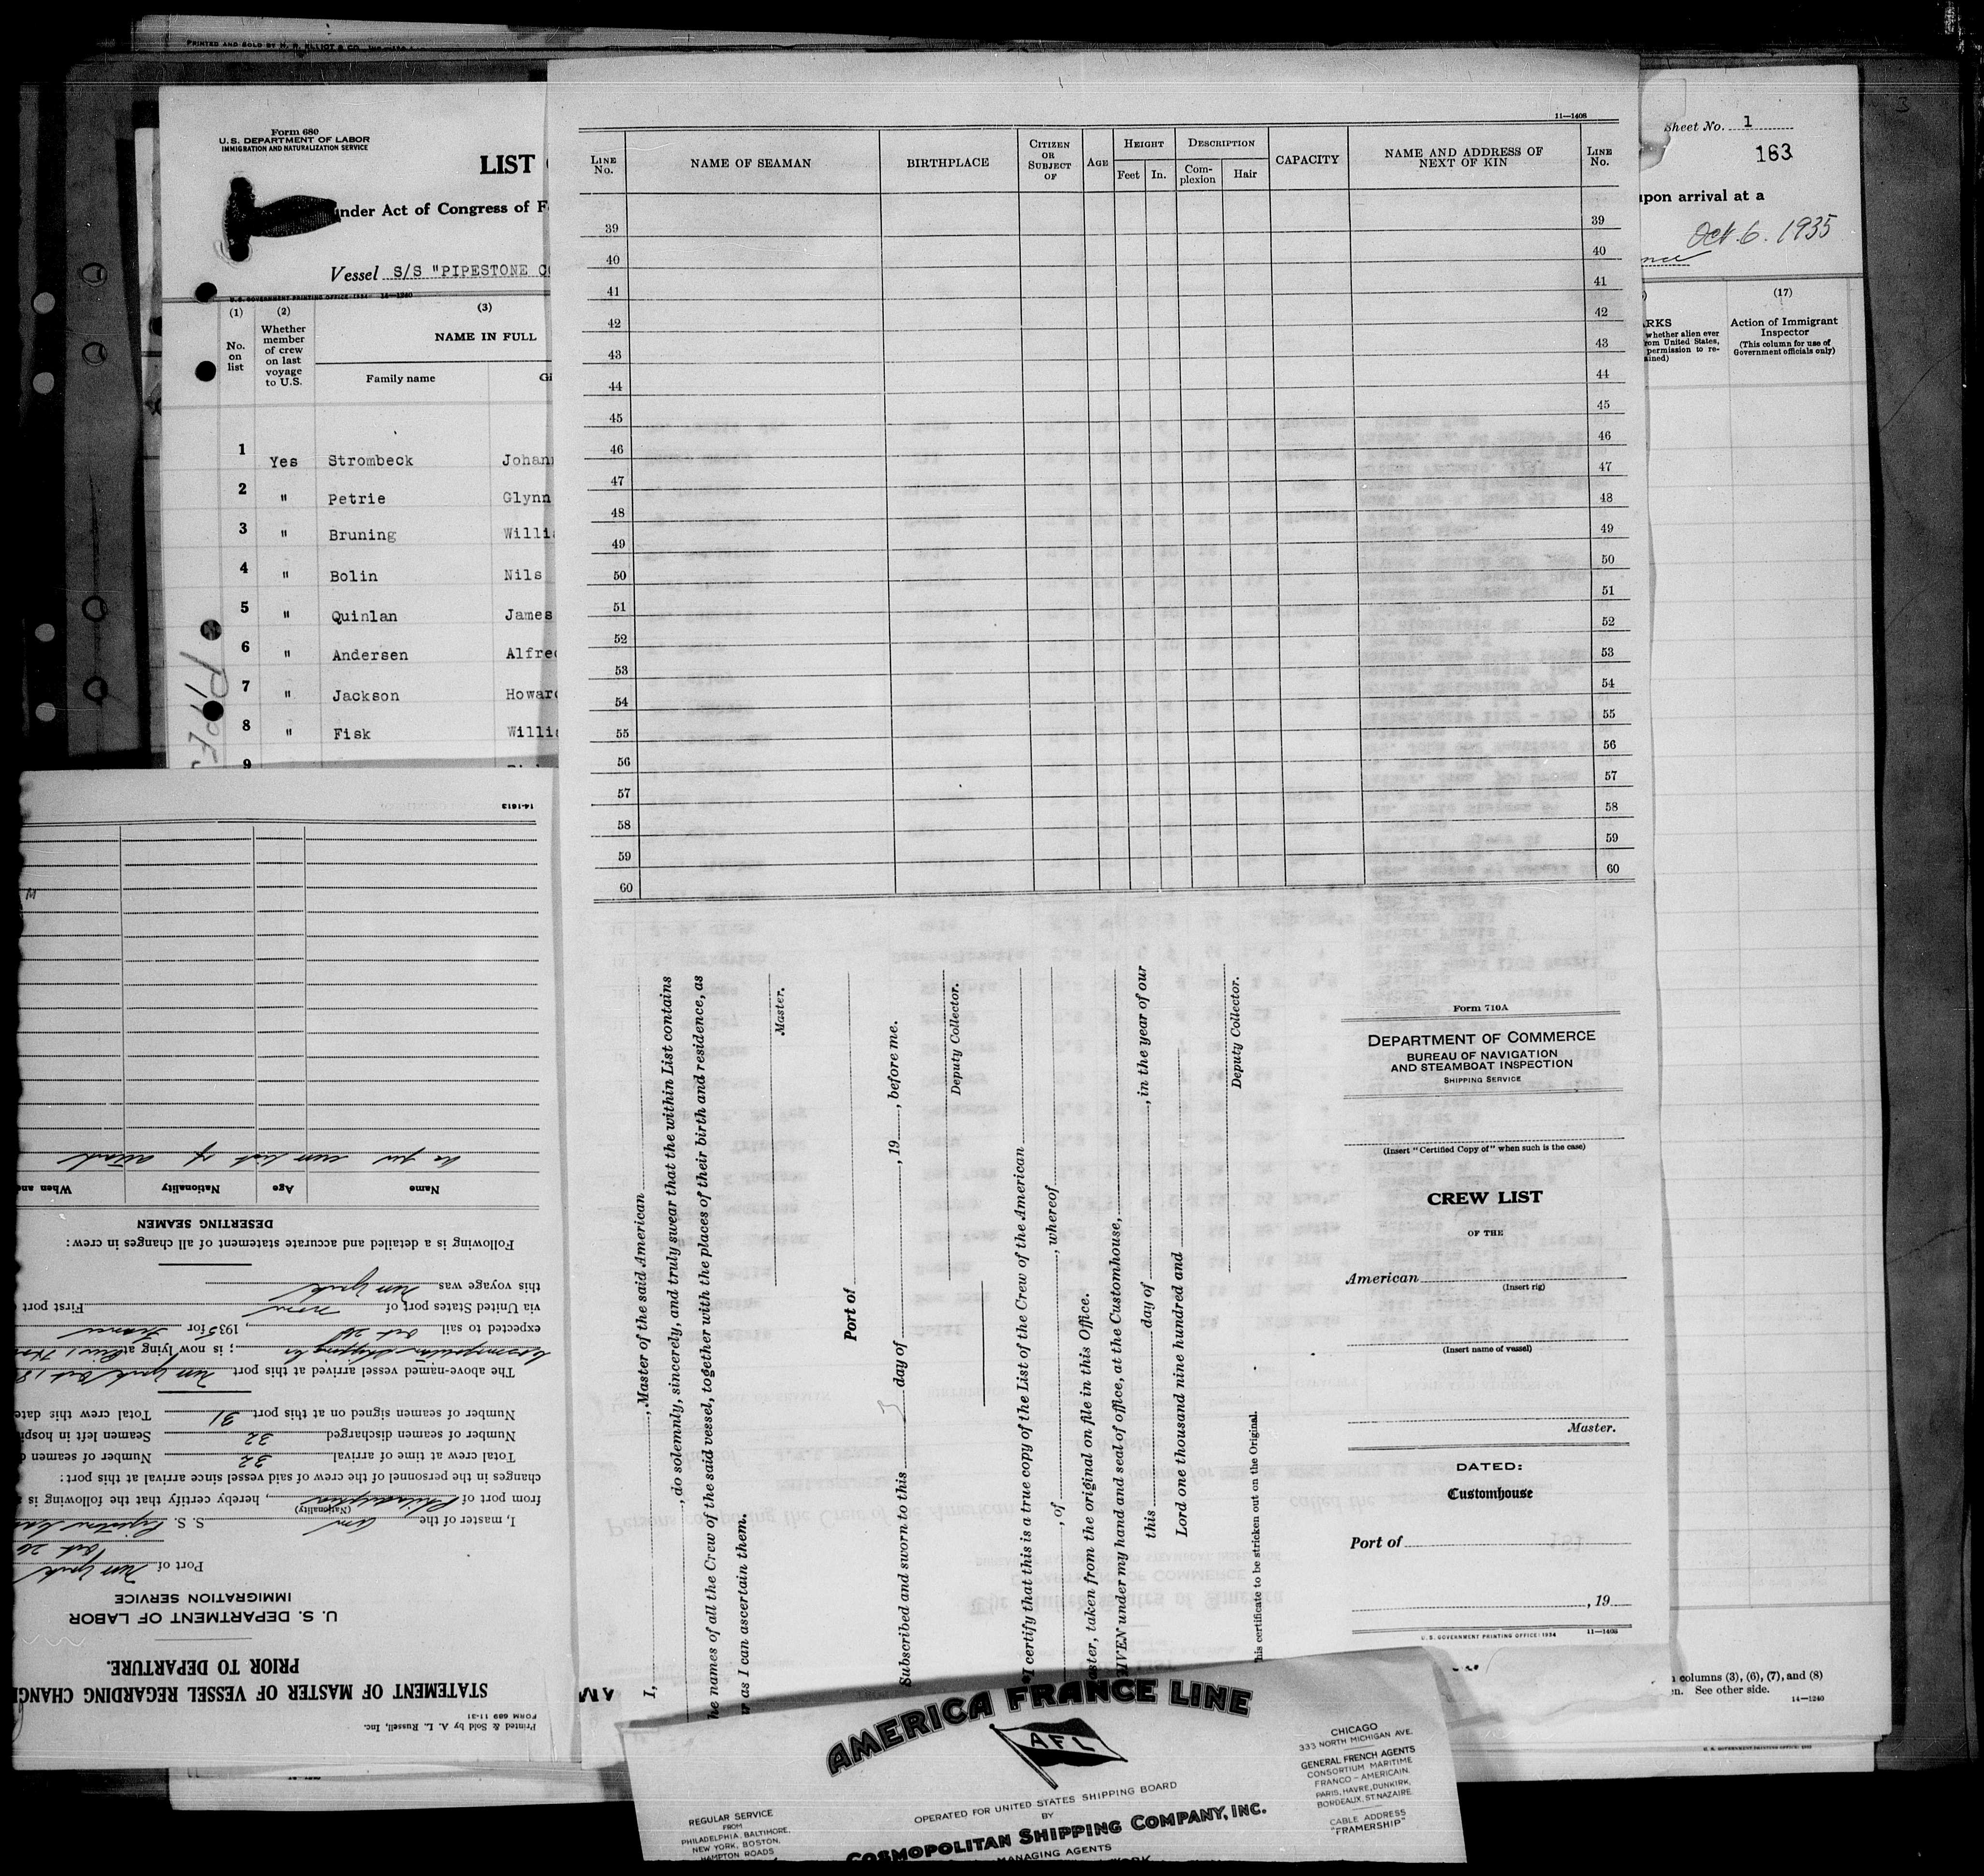 PRINTED AND SOLD BY M. R. ELLIOT & CO.
Form 680
U.S. DEPARTMENT OF LABOR
IMMIGRATION AND NATURALIZATION SERVICE
LIST
under Act of Congress of F
Vessel S/S "PIPESTONE CO
U.S. GOVERNMENT PRINTING OFFICE: 1934 14—1240
(1) (2) (3)
No. on list
Whether member of crew on last voyage to U.S.
NAME IN FULL
Family name Gi
1 Yes Strombeck Johan
2 " Petrie Glynn
3 " Bruning Willi
4 " Bolin Nils
5 " Quinlan James
6 " Andersen Alfre
7 " Jackson Howar
8 " Fisk Willi
9
Sheet No. 1
163
upon arrival at a
Oct. 6. 1935
(17)
ARKS
whether alien ever
rom United States,
permission to re-
ained)
Action of Immigrant Inspector
(This column for use of Government officials only)
columns (3), (6), (7), and (8)
en. See other side.
14—1240
11—1408
LINE No.
NAME OF SEAMAN
BIRTHPLACE
CITIZEN OR SUBJECT OF
AGE
HEIGHT
Feet In.
DESCRIPTION
Com-plexion Hair
CAPACITY
NAME AND ADDRESS OF NEXT OF KIN
LINE No.
39 39
40 40
41 41
42 42
43 43
44 44
45 45
46 46
47 47
48 48
49 49
50 50
51 51
52 52
53 53
54 54
55 55
56 56
57 57
58 58
59 59
60 60
I, , Master of the said American
, do solemnly, sincerely, and truly swear that the within List contains
he names of all the Crew of the said vessel, together with the places of their birth and residence, as
r as I can ascertain them.
Master.
Port of
Subscribed and sworn to this day of , 19 , before me.
Deputy Collector.
*I certify that this is a true copy of the List of the Crew of the American
, of , whereof
aster, taken from the original on file in this Office.
GIVEN under my hand and seal of office, at the Customhouse,
this day of , in the year of our
Lord one thousand nine hundred and
Deputy Collector.
his certificate to be stricken out on the Original.
Form 710A
DEPARTMENT OF COMMERCE
BUREAU OF NAVIGATION
AND STEAMBOAT INSPECTION
SHIPPING SERVICE
(Insert "Certified Copy of" when such is the case)
CREW LIST
OF THE
American
(Insert rig)
(Insert name of vessel)
Master.
DATED:
Customhouse
Port of
, 19
U.S. GOVERNMENT PRINTING OFFICE: 1934 11—1408
Printed & Sold by A. L. Russell, Inc.
FORM 689 11-31
STATEMENT OF MASTER OF VESSEL REGARDING CHANG
PRIOR TO DEPARTURE.
U. S. DEPARTMENT OF LABOR
IMMIGRATION SERVICE
Port of New York
Oct. 26
I, master of the Am S. S. Pipestone
(Nationality)
from port of Philadelphia, hereby certify that the following is
changes in the personnel of the crew of said vessel since arrival at this port:
Total crew at time of arrival 32 Number of seamen
Number of seamen discharged 32 Seamen left in hospi
Number of seamen signed on at this port 31 Total crew this date
The above-named vessel arrived at this port New York Oct. 18
Cosmopolitan Shipping Co ; is now lying at Pier 1
expected to sail Oct 26, 1935 for France
via United States port of none First port
this voyage was New York
Following is a detailed and accurate statement of all changes in crew:
DESERTING SEAMEN
Name Age Nationality When an
As per crew list of attached
14-1613
AMERICA FRANCE LINE
AFL
OPERATED FOR UNITED STATES SHIPPING BOARD
BY
COSMOPOLITAN SHIPPING COMPANY, INC.
MANAGING AGENTS
REGULAR SERVICE
FROM
PHILADELPHIA, BALTIMORE,
NEW YORK, BOSTON,
HAMPTON ROADS
CHICAGO
333 NORTH MICHIGAN AVE.
GENERAL FRENCH AGENTS
CONSORTIUM MARITIME
FRANCO-AMERICAIN
PARIS, HAVRE, DUNKIRK,
BORDEAUX, ST. NAZAIRE.
CABLE ADDRESS
"FRAMERSHIP"